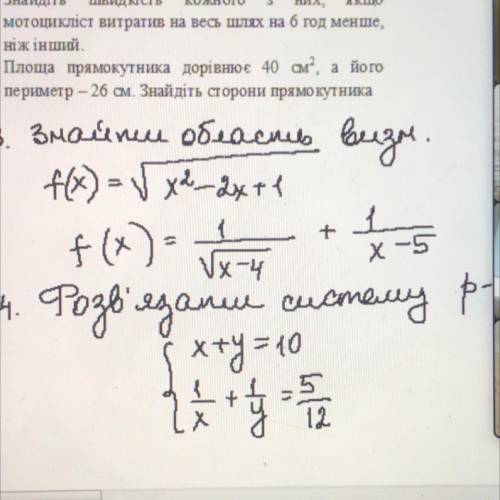 Знайдіть швидкість кожного з них, якщо
мотоцикліст витратив на весь шлях на 6 год менше,
ніж інший.
Площа прямокутника дорівнює 40 см², а його
периметр – 26 см. Знайдіть сторони прямокутника
3. Знайти область визн.
f(x) = √(x²-2x+1)
f(x) = 1/√(x-4) + 1/(x-5)
4. Розв'язати систему р-
{ x+y=10
1/x + 1/y = 5/12